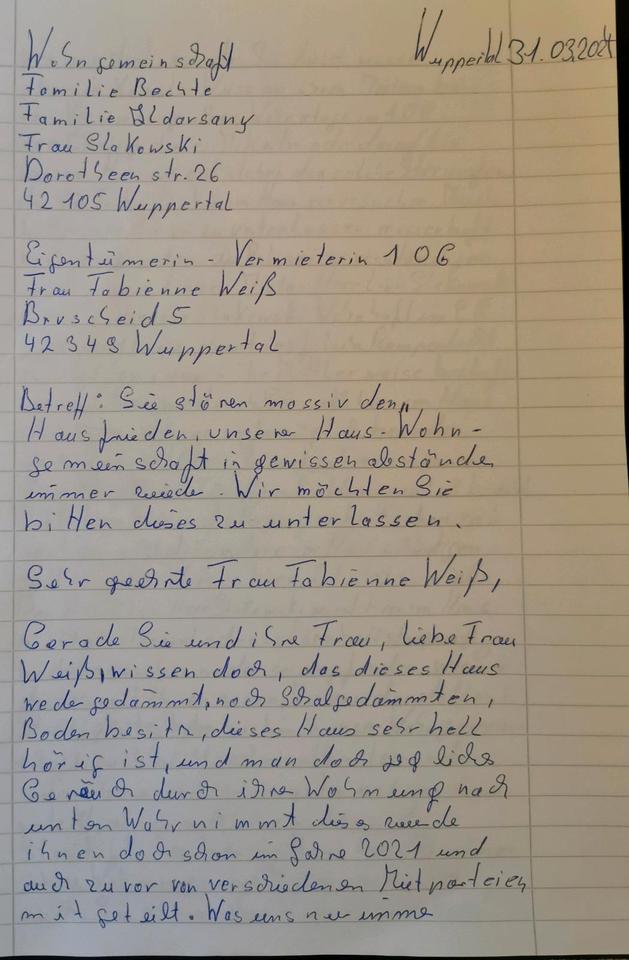 Wuppertal 31.03.2025
Wohngemeinschaft
Familie Bechte
Familie Eldarsany
Frau Slakowski
Dorotheen str. 26
42105 Wuppertal
Eigentümerin - Vermieterin 1 OG
Frau Fabienne Weiß
Bruscheid 5
42349 Wuppertal
Betreff: Sie stören massiv den,,
Hausfrieden, unserer Haus-Wohn-
gemeinschaft in gewissen abstände
immer wieder. Wir möchten Sie
bitten dieses zu unterlassen.
Sehr geehrte Frau Fabienne Weiß,
Gerade Sie und ihre Frau, liebe Frau
Weiß, wissen doch, das dieses Haus
weder gedämmt, noch Schalgedämmten,
Boden besitz, dieses Haus sehr hell
hörig ist, und man doch jegliche
Geräuch durch ihre Wohnung nach
unten Wahrnimmt dies wurde
ihnen doch schon im Jahre 2021 und
auch zuvor von verschiedenen Mietparteien
mitgeteilt. Was uns nur imme